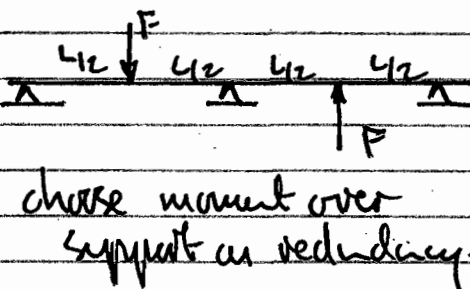 F
L/2 L/2 L/2 L/2
F
choose moment over
support as redundancy.